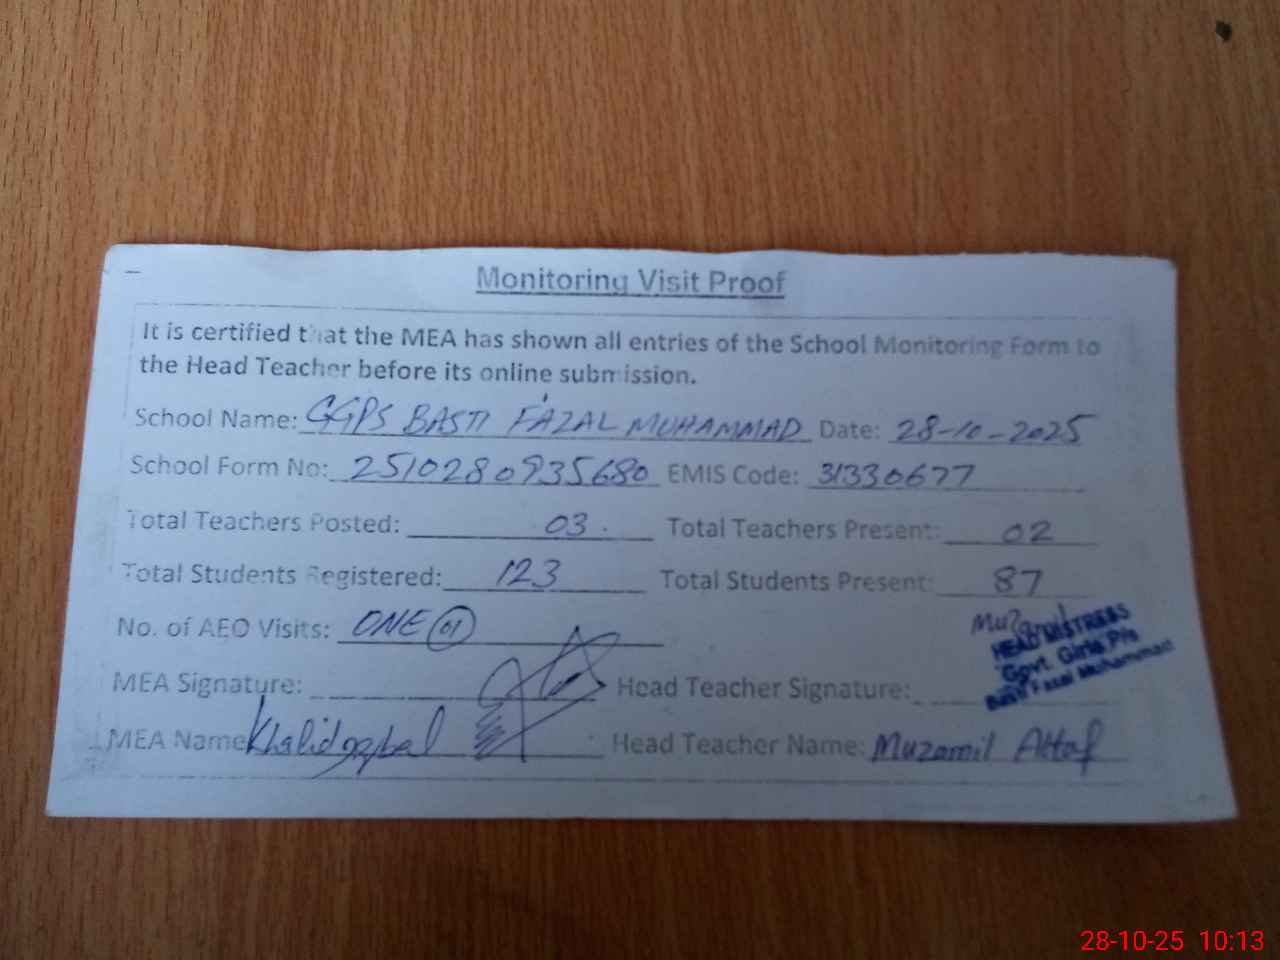 Monitoring Visit Proof
It is certified that the MEA has shown all entries of the School Monitoring Form to
the Head Teacher before its online submission.
School Name: GGPS BASTI FAZAL MUHAMMAD Date: 28-10-2025
School Form No: 2510280935680 EMIS Code: 31330677
Total Teachers Posted: 03. Total Teachers Present: 02
Total Students Registered: 123 Total Students Present: 87
No. of AEO Visits: ONE 01
Muzamil
HEAD MISTRESS
Govt. Girls P/s
Basti Fazal Muhammad
MEA Signature: Head Teacher Signature:
MEA Name Khalid Iqbal Head Teacher Name: Muzamil Altaf
28-10-25 10:13